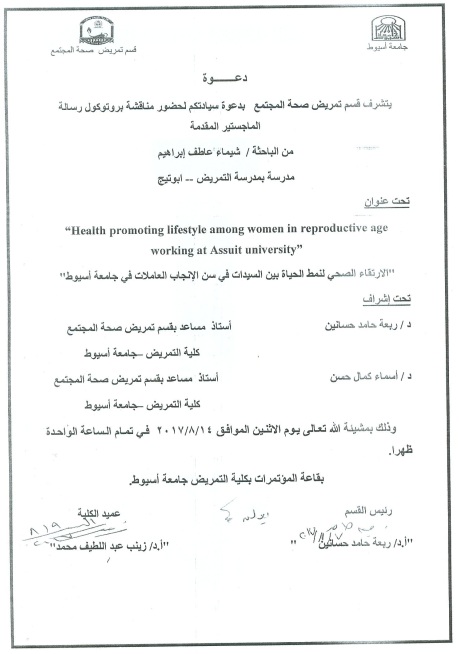 جامعة أسيوط
قسم تمريض صحة المجتمع
دعـــــوة
يتشرف قسم تمريض صحة المجتمع بدعوة سيادتكم لحضور مناقشة بروتوكول رسالة
الماجستير المقدمة
من الباحثة / شيماء عاطف إبراهيم
مدرسة بمدرسة التمريض -- ابوتيج
تحت عنوان
“Health promoting lifestyle among women in reproductive age
working at Assuit university”
"الارتقاء الصحي لنمط الحياة بين السيدات في سن الإنجاب العاملات في جامعة أسيوط"
تحت إشراف
د / ربعة حامد حسانين أستاذ مساعد بقسم تمريض صحة المجتمع
كلية التمريض –جامعة أسيوط
د / أسماء كمال حسن أستاذ مساعد بقسم تمريض صحة المجتمع
كلية التمريض –جامعة أسيوط
وذلك بمشيئة الله تعالى يوم الاثنين الموافق ٢٠١٧/٨/١٤ في تمام الساعة الواحدة
ظهرا.
بقاعة المؤتمرات بكلية التمريض جامعة أسيوط.
رئيس القسم عميد الكلية
"أ.د/ ربعة حامد حسانين " "أ.د/ زينب عبد اللطيف محمد"